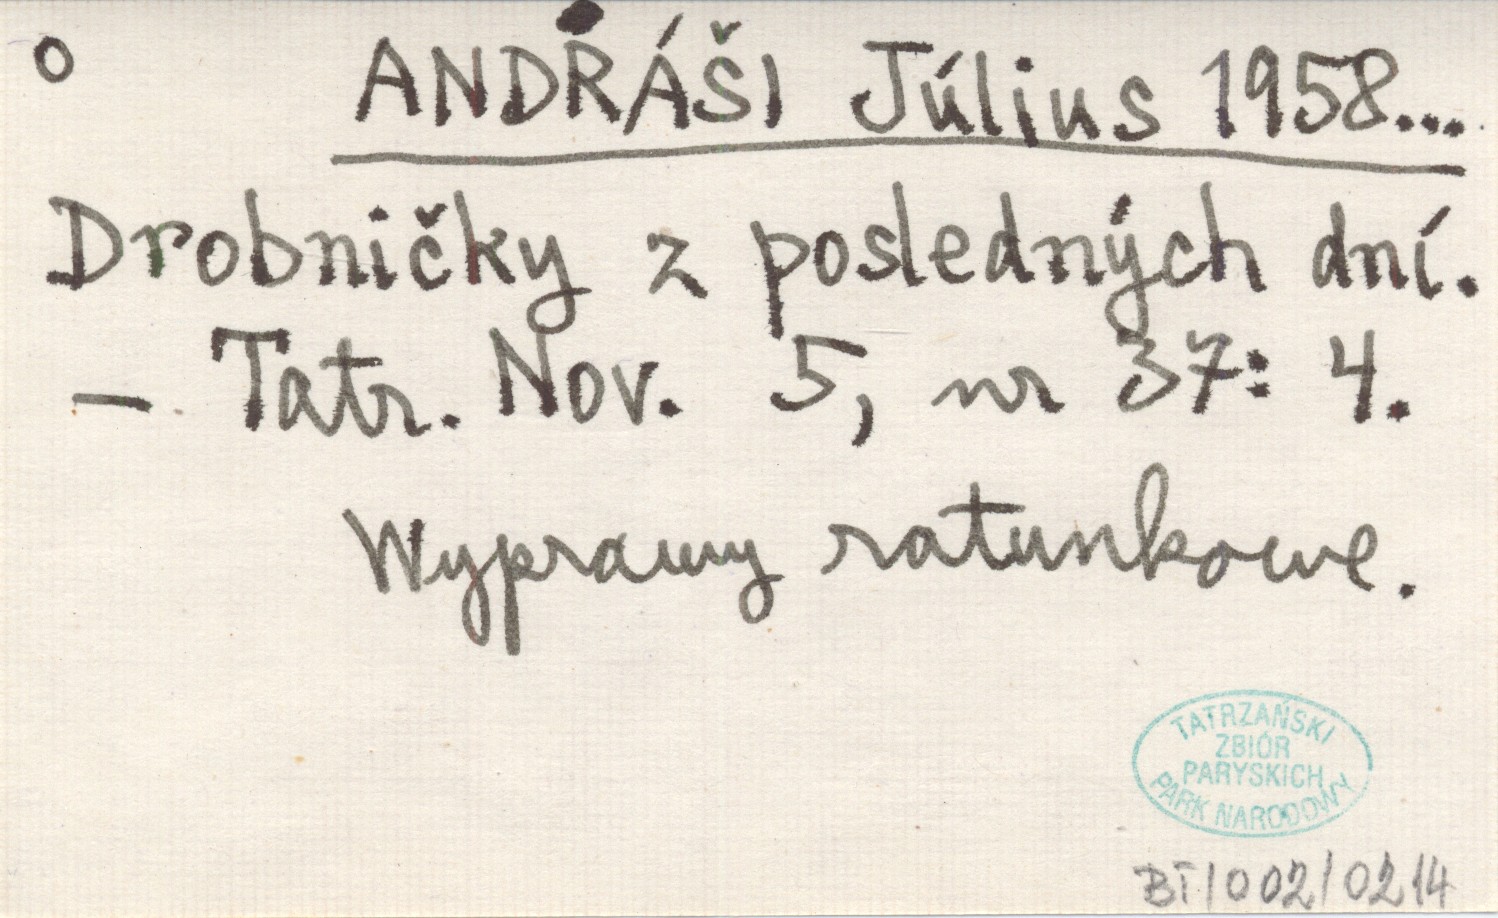 o ANDRÁŠI Július 1958...
Drobničky z posledných dní.
– Tatr. Nov. 5, nr 37: 4.
Wyprawy ratunkowe.
TATRZAŃSKI
ZBIÓR
PARYSKICH
PARK NARODOWY
BT/002/0214